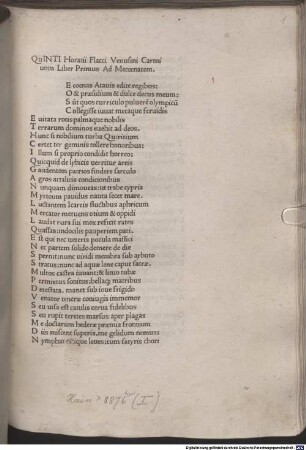 QVINTI Horatii Flacci Venusini Carmi
num Liber Primus Ad Mecœnatem.
E cœnas Atauis edite regibus:
O & præsidium & dulce decus meum:
S ūt quos curriculo puluerē olympicū
C ollegisse iuuat metaque feruidis
E uitata rotis palmaque nobilis
T errarum dominos euehit ad deos.
H unc si nobilium turba Quiritium
C ertet ter geminis tollere honoribus:
I llum si proprio condidit horreo:
Q uicquid de lybicis uerritur areis
G audentem patrios findere sarculo
A gros attalicis condicionibus
N unquam dimoueas: ut trabe cypria
M yrtoum pauidus nauta secet mare.
L uctantem Icariis fluctibus aphricum
M ercator metuens otium & oppidi
L audat rura sui mox reficit rates
Q uassas indocilis pauperiem pati.
E st qui nec ueteris pocula massici
N ec partem solido demere de die
S pernit: nunc uiridi membra sub arbuto
S tratus: nunc ad aquæ lene caput sacræ.
M ultos castra iuuant: & lituo tubæ
P ermixtus sonitus: bellaque matribus
D etestata. manet sub ioue frigido
V enator teneræ coniugis immemor
S eu uisa est catulis cerua fidelibus
S eu rupit teretes marsus aper plagas
M e doctarum hederæ præmia frontium
D iis miscent superis. me gelidum nemus
N ympharumque leues cum satyris chori
Hain 8876 (I)